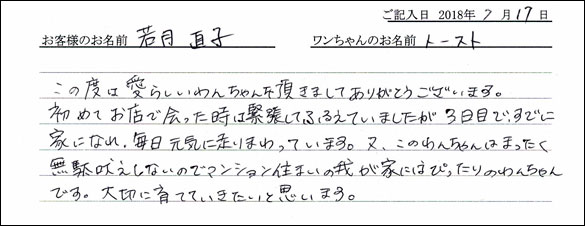 ご記入日 2018年 7月 17日
お客様のお名前 若月 直子 ワンちゃんのお名前 トースト
この度は愛らしいわんちゃんを頂きましてありがとうございます。
初めてお店で会った時は緊張してふるえていましたが3日目で、すでに
家になれ、毎日元気に走りまわっています。又、このわんちゃんはまったく
無駄吠えしないのでマンション住まいの我が家にはぴったりのわんちゃん
です。大切に育てていきたいと思います。